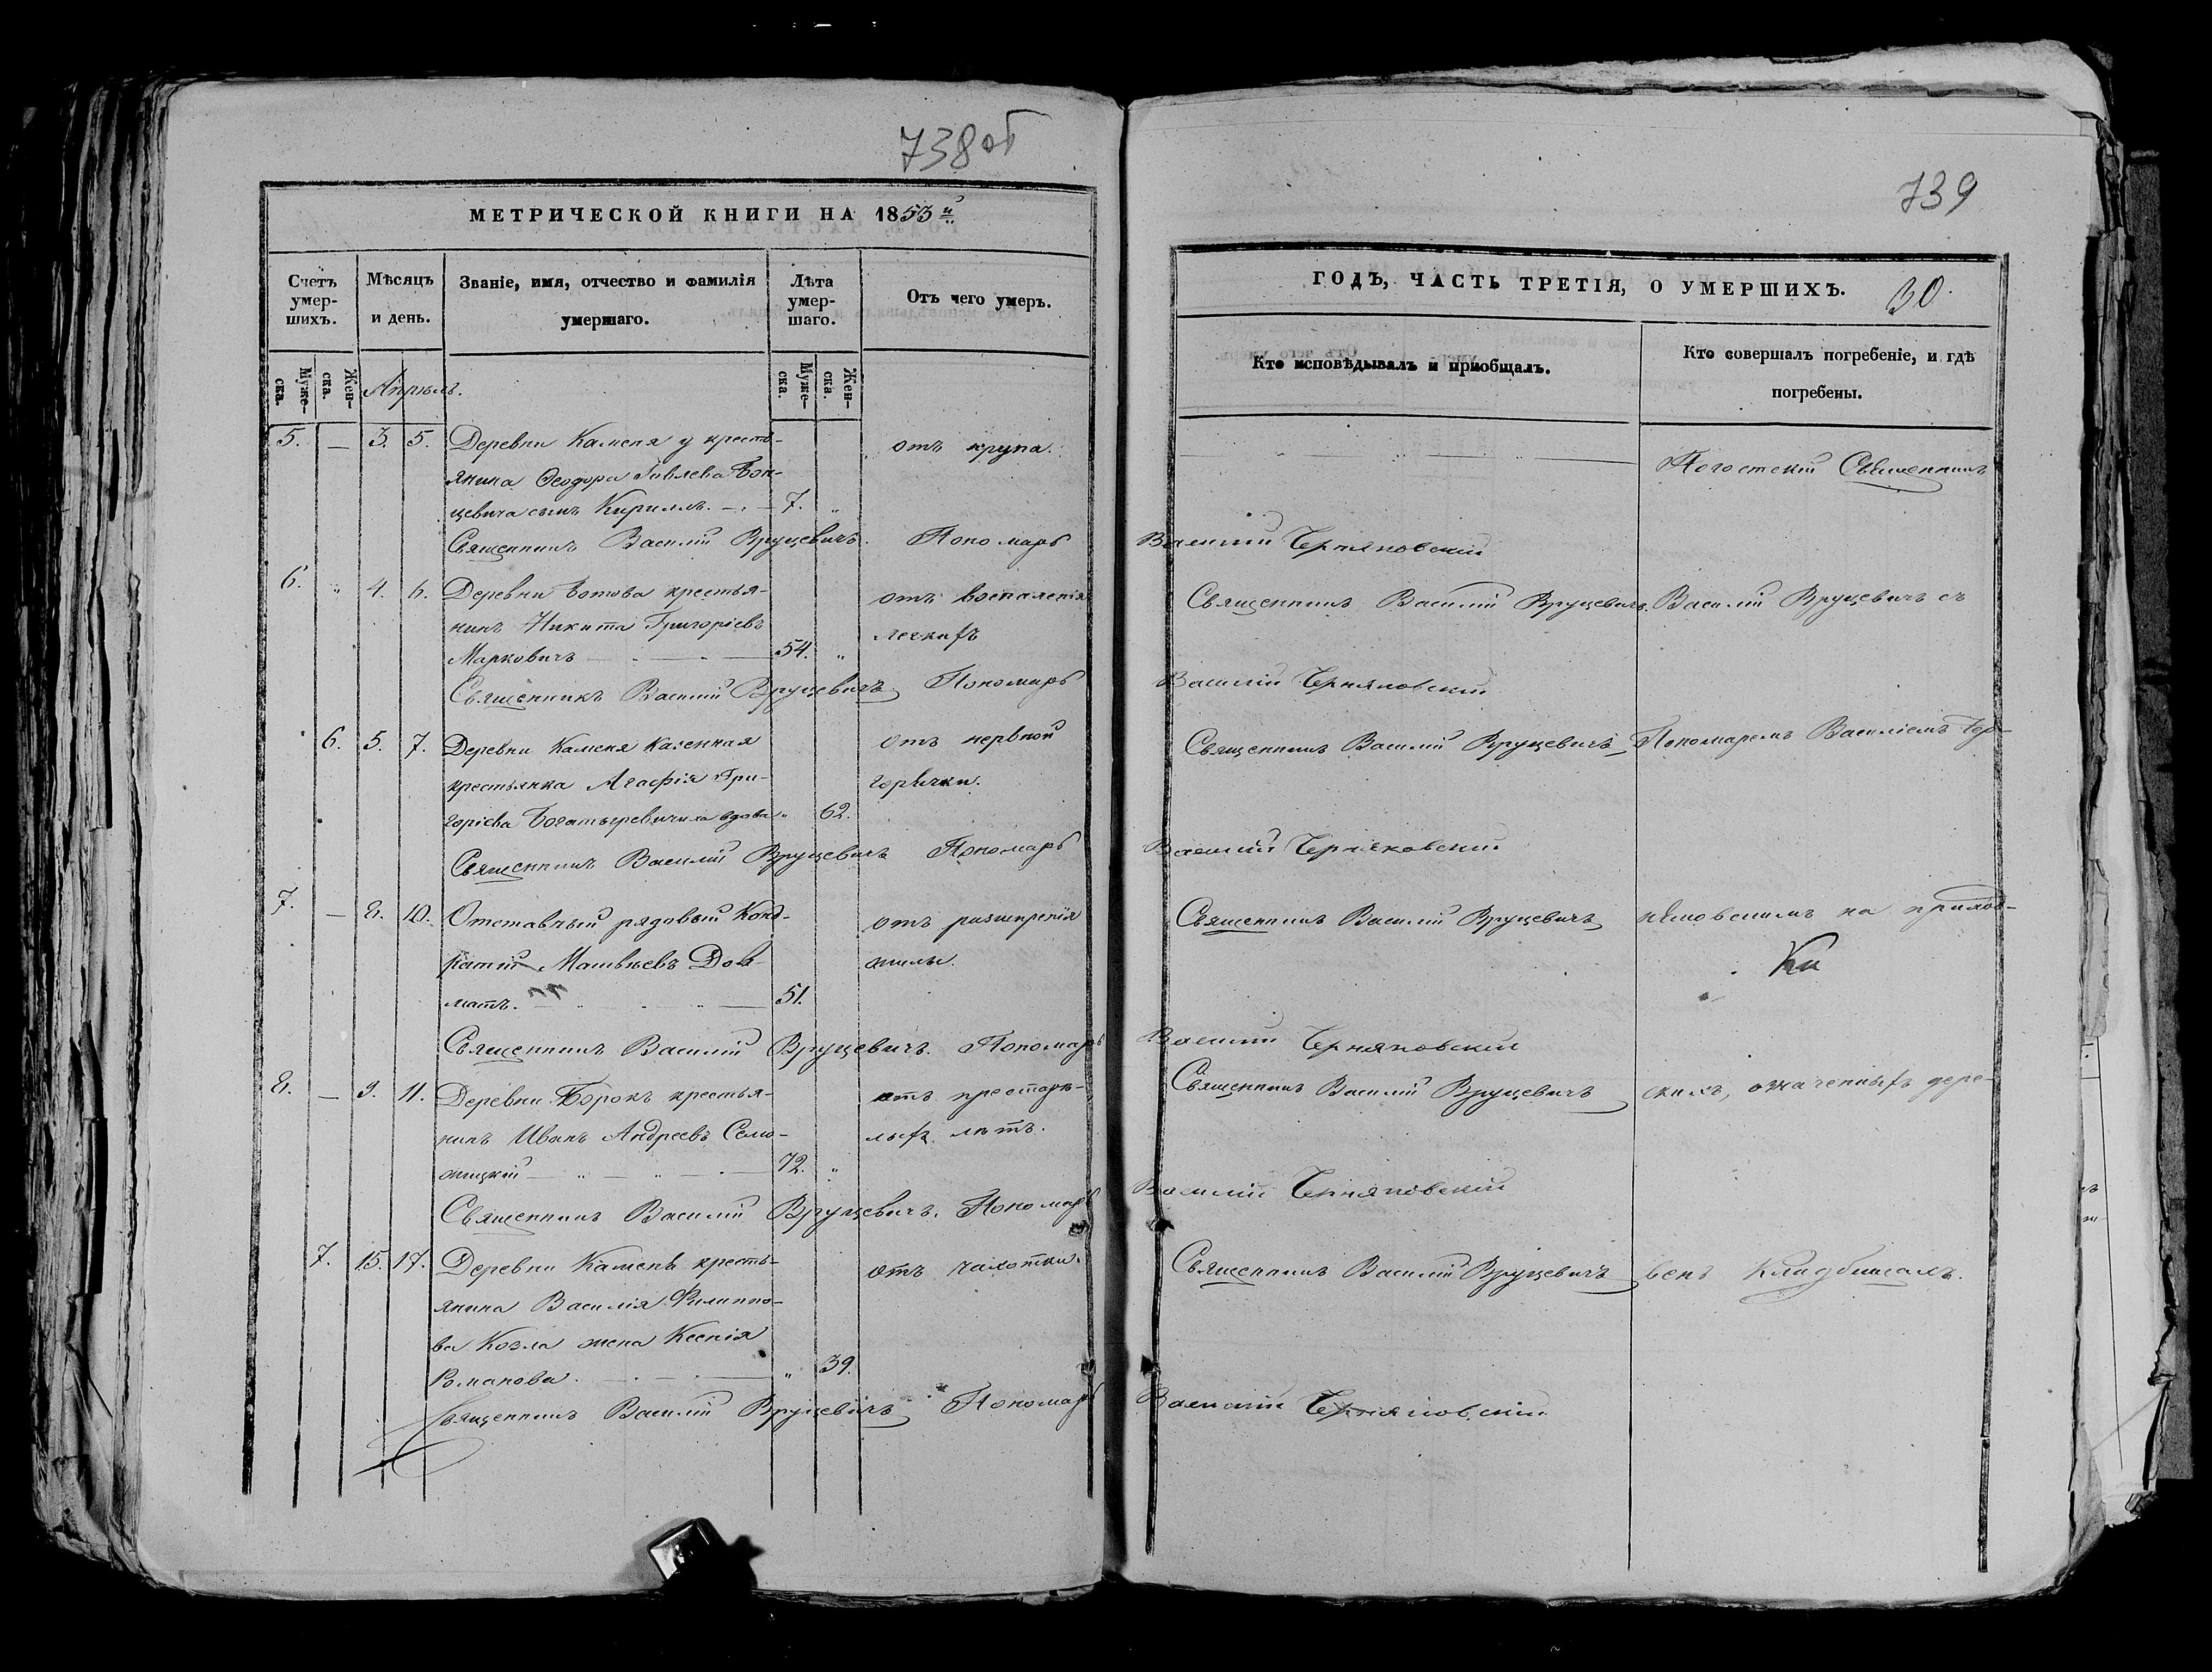 738 об
МЕТРИЧЕСКОЙ КНИГИ НА 1853 й
Счетъ умер-шихъ.
Мѣсяцъ и день.
Званіе, имя, отчество и фамилія умершаго.
Лѣта умер-шаго.
Отъ чего умеръ.
Муже-ска.
Жен-ска.
Муже-ска.
Жен-ска.
Апрѣль.
5. — 3. 5. Деревни Каменя у кресть-
янина Ѳеодора Іовлева Бон-
цевича сынъ Кириллъ. — 7. „
отъ крупа.
Священникъ Василій Вруцевичъ. Пономарь
6. „ 4. 6. Деревни Ботова крестья-
нинъ Никита Григоріевъ
Марковичъ — 54. „
отъ воспаленія
легкихъ
Священникъ Василій Вруцевичъ Пономарь
6. 5. 7. Деревни Каменя казенная
крестьянка Агафія Гри-
горіева Богатыревичиха вдова „ 62.
отъ нервной
горячки.
Священникъ Василій Вруцевичъ Пономарь
7. — 8. 10. Отставный рядовый Конд-
ратій Матвѣевъ Дов-
матъ. — 51.
отъ разширенія
жилы.
Священникъ Василій Вруцевичъ. Пономарь
8. — 9. 11. Деревни Борокъ крестья-
нинъ Иванъ Андреевъ Само-
жицкій — 72. „
отъ престарѣ-
лыхъ лѣтъ.
Священникъ Василій Вруцевичъ. Пономарь
7. 15. 17. Деревни Каменя кресть-
янина Василія Филиппо-
ва Козла жена Ксенія
Романова. — „ 39.
отъ чахотки.
Священникъ Василій Вруцевичъ Пономарь
739
ГОДЪ, ЧАСТЬ ТРЕТІЯ, О УМЕРШИХЪ.
30.
Кто исповѣдывалъ и пріобщалъ.
Кто совершалъ погребеніе, и гдѣ погребены.
Погостскій Священникъ
Василій Черняковскій
Священникъ Василій Вруцевичъ. Василій Вруцевичъ съ
Василій Черняковскій
Священникъ Василій Вруцевичъ Пономаремъ Василіемъ Чер-
Василій Черняковскій
Священникъ Василій Вруцевичъ няковскимъ на приход-
Василій Черняковскій
Священникъ Василій Вруцевичъ скихъ, означенныхъ дере-
Василій Черняковскій
Священникъ Василій Вруцевичъ вень кладбищахъ.
Василій Черняковскій